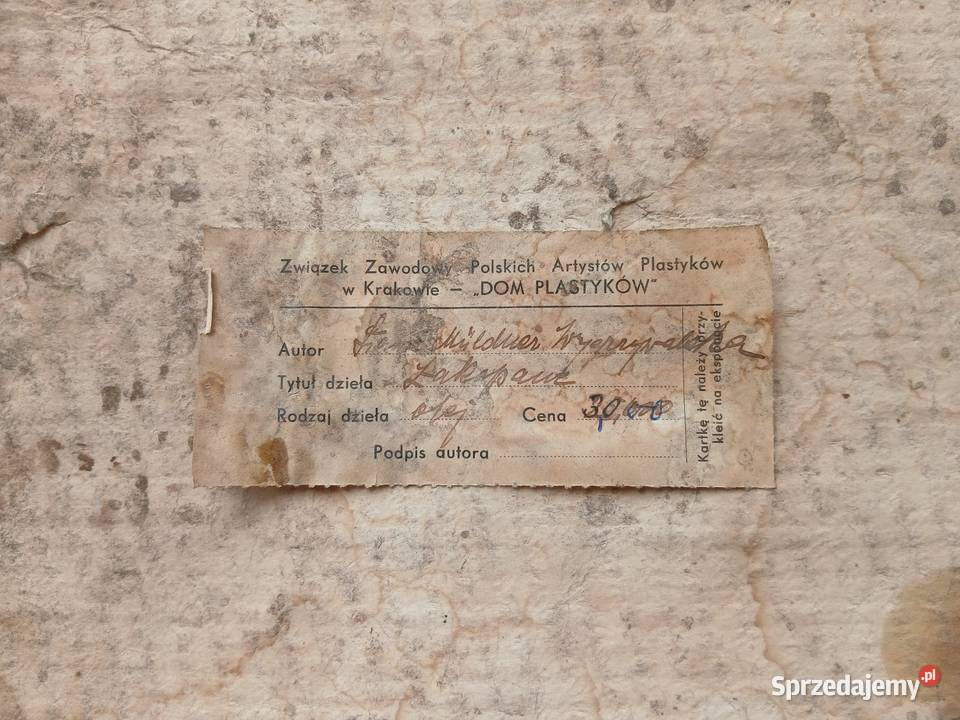 Związek Zawodowy Polskich Artystów Plastyków
w Krakowie – „DOM PLASTYKÓW”
Autor Müldner
Tytuł dzieła Zakopane
Rodzaj dzieła olej Cena
Podpis autora
Kartkę tę należy przy-
kleić na eksponacie
Sprzedajemy.pl